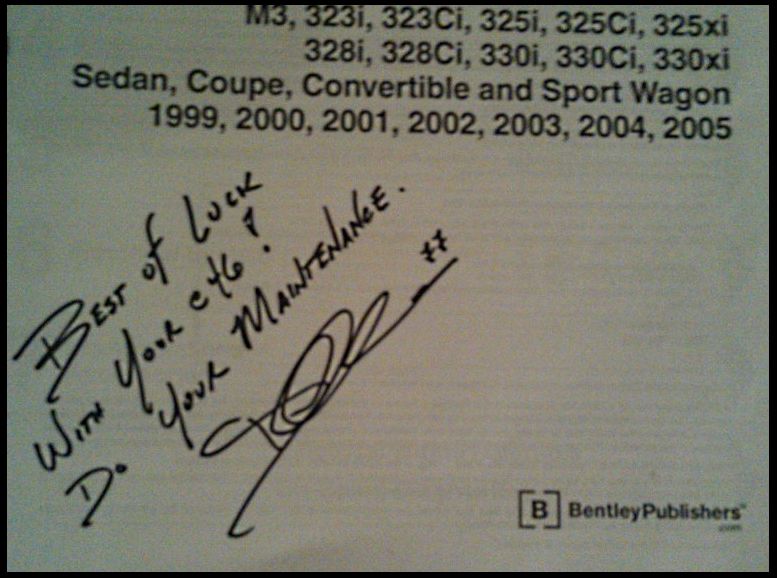 M3, 323i, 323Ci, 325i, 325Ci, 325xi
328i, 328Ci, 330i, 330Ci, 330xi
Sedan, Coupe, Convertible and Sport Wagon
1999, 2000, 2001, 2002, 2003, 2004, 2005
BEST OF LUCK
WITH YOUR e46!
DO YOUR MAINTENANCE.
[B] BentleyPublishers™
.com